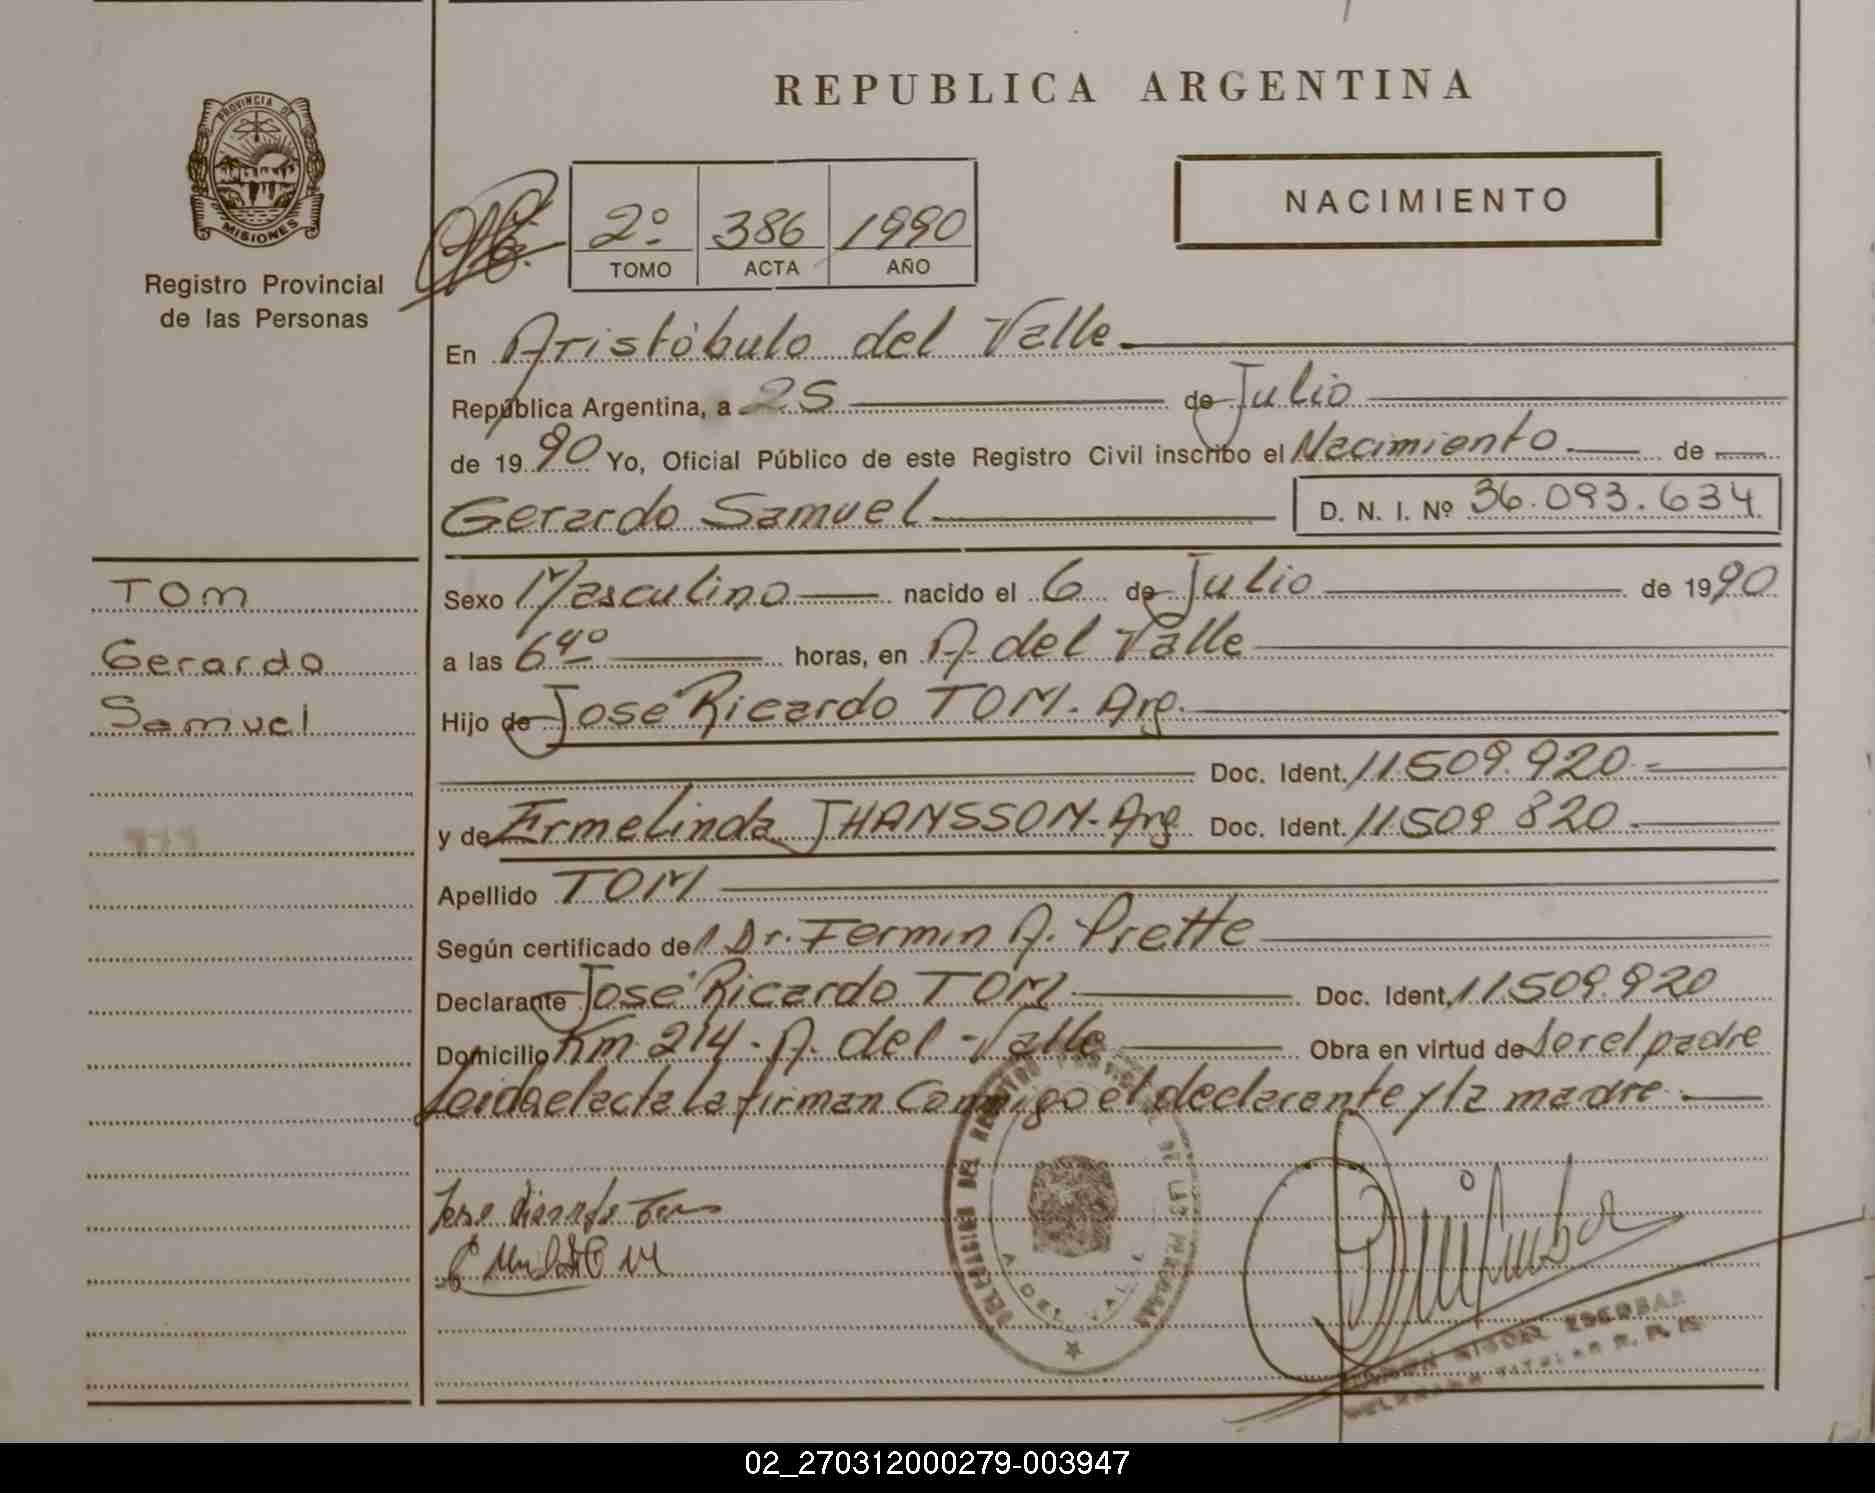 REPUBLICA ARGENTINA
PROVINCIA DE
MISIONES
Registro Provincial
de las Personas
2º 386 1990
TOMO ACTA AÑO
NACIMIENTO
En Aristóbulo del Valle
República Argentina, a 25 de Julio
de 1990 Yo, Oficial Público de este Registro Civil inscribo el Nacimiento de
Gerardo Samuel D. N. I. Nº 36.093.634
TOM
Gerardo
Samuel
Sexo Masculino nacido el 6 de Julio de 1990
a las 6 4º horas, en A. del Valle
Hijo de José Ricardo TOM. Arg.
Doc. Ident. 11509.920
y de Ermelinda JHANSSON. Arg Doc. Ident. 11509 820
Apellido TOM
Según certificado del Dr. Fermin A. Prette
Declarante José Ricardo TOM Doc. Ident. 11509.920
Domicilio Km 214. A. del Valle Obra en virtud de Ser el padre
Leida el acta la firman Conmigo el declarante y la madre
DELEGACION DEL REGISTRO PROVINCIAL DE LAS PERSONAS
A. DEL VALLE
02_270312000279-003947